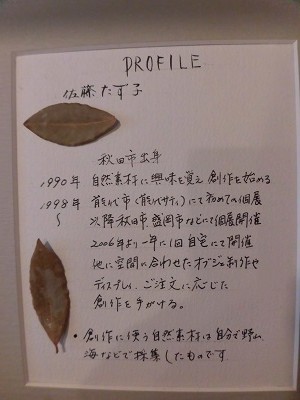 PROFILE
佐藤たす子
秋田市出身
1990年 自然素材に興味を覚え創作を始める
1998年 能代市(能代サティ)にて初めての個展
〜 以降秋田市、盛岡市などにて個展開催
2006年より一年に1回自宅にて開催
他に空間に合わせたオブジェ制作や
ディスプレイ、ご注文に応じた
創作を手がける。
• 創作に使う自然素材は自分で野山、
海などで採集したものです